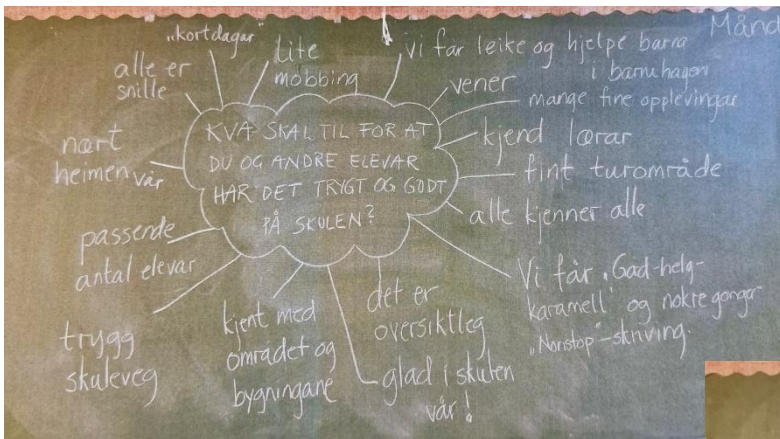 Månd
KVA SKAL TIL FOR AT
DU OG ANDRE ELEVAR
HAR DET TRYGT OG GODT
PÅ SKULEN?
„kortdagar"
lite
mobbing
vi får leike og hjelpe barna
i barnehagen
vener
mange fine opplevingar
kjend lærar
fint turområde
alle kjenner alle
Vi får „God-helg-
karamell" og nokre gonger
„Nonstop"-skriving.
det er
oversiktleg
glad i skulen
vår!
kjent med
området og
bygningane
trygg
skuleveg
passende
antal elevar
nært
heimen vår
alle er
snille